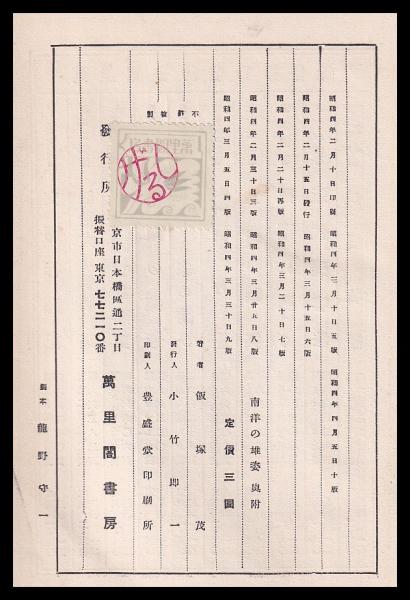 昭和四年二月十日印刷　昭和四年三月十日五版　昭和四年四月五日十版
昭和四年二月十五日發行　昭和四年三月十五日六版
昭和四年二月二十日再版　昭和四年三月二十日七版
昭和四年二月三十日三版　昭和四年三月廿五日八版　南洋の雄姿奥附
昭和四年三月五日四版　昭和四年三月三十日九版　定價三圓
不許複製
著者　飯塚茂
發行人　小竹即一
印刷人　豊盛堂印刷所
京市日本橋區通二丁目
發行所　萬里閣書房
振替口座東京七七二一〇番
製本　龍野守一